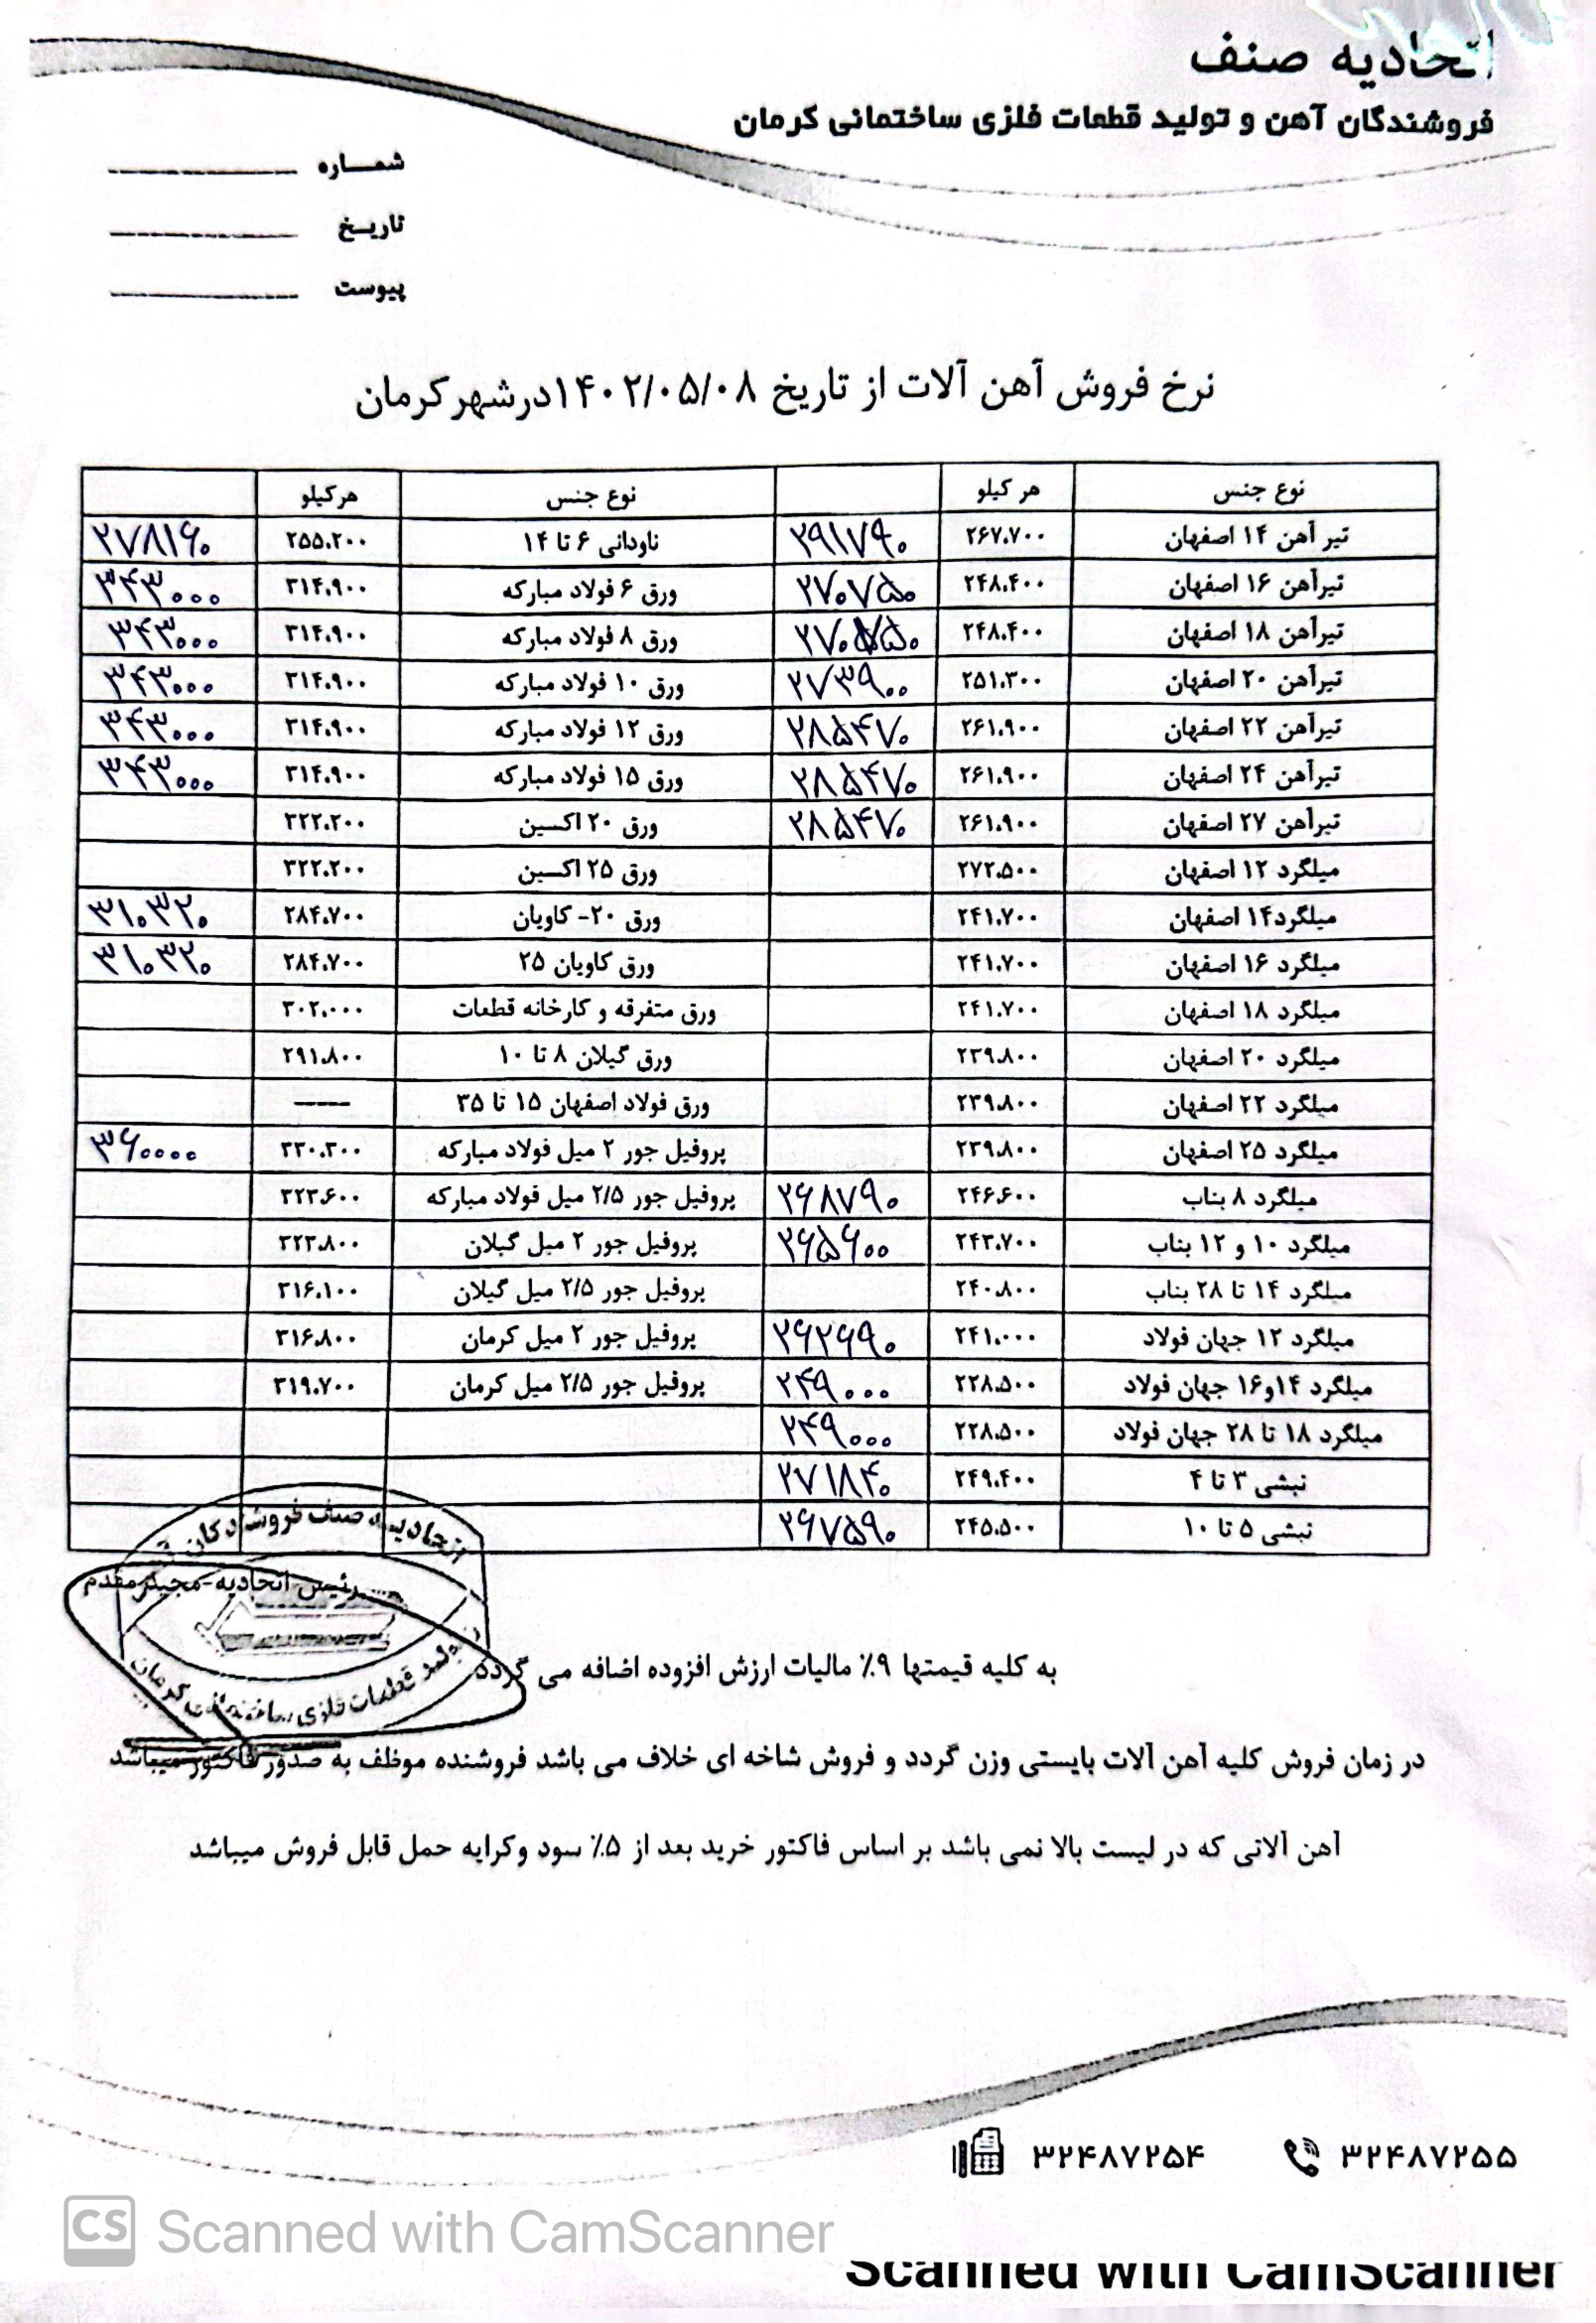 اتحادیه صنف
فروشندگان آهن و تولید قطعات فلزی ساختمانی کرمان
شمــاره
تاریـخ
پیوست
نرخ فروش آهن آلات از تاریخ ۱۴۰۲/۰۵/۰۸درشهرکرمان
نوع جنس هر کیلو نوع جنس هرکیلو
تیر آهن ۱۴ اصفهان ۲۶۷.۷۰۰ ۲۹۱۷۹۰ ناودانی ۶ تا ۱۴ ۲۵۵.۲۰۰ ۲۷۸۱۶۰
تیرآهن ۱۶ اصفهان ۲۴۸.۴۰۰ ۲۷۰۷۵۰ ورق ۶ فولاد مبارکه ۳۱۴.۹۰۰ ۳۴۳۰۰۰
تیرآهن ۱۸ اصفهان ۲۴۸.۴۰۰ ورق ۸ فولاد مبارکه ۳۱۴.۹۰۰ ۳۴۳۰۰۰
تیرآهن ۲۰ اصفهان ۲۵۱.۳۰۰ ۲۷۳۹۰۰ ورق ۱۰ فولاد مبارکه ۳۱۴.۹۰۰ ۳۴۳۰۰۰
تیرآهن ۲۲ اصفهان ۲۶۱.۹۰۰ ۲۸۵۴۷۰ ورق ۱۲ فولاد مبارکه ۳۱۴.۹۰۰ ۳۴۳۰۰۰
تیرآهن ۲۴ اصفهان ۲۶۱.۹۰۰ ۲۸۵۴۷۰ ورق ۱۵ فولاد مبارکه ۳۱۴.۹۰۰ ۳۴۳۰۰۰
تیرآهن ۲۷ اصفهان ۲۶۱.۹۰۰ ۲۸۵۴۷۰ ورق ۲۰ اکسین ۳۲۲.۲۰۰
میلگرد ۱۲ اصفهان ۲۷۲.۵۰۰ ورق ۲۵ اکسین ۳۲۲.۲۰۰
میلگرد۱۴ اصفهان ۲۴۱.۷۰۰ ورق ۲۰- کاویان ۲۸۴.۷۰۰ ۳۱۰۳۲۰
میلگرد ۱۶ اصفهان ۲۴۱.۷۰۰ ورق کاویان ۲۵ ۲۸۴.۷۰۰ ۳۱۰۳۲۰
میلگرد ۱۸ اصفهان ۲۴۱.۷۰۰ ورق متفرقه و کارخانه قطعات ۳۰۲.۰۰۰
میلگرد ۲۰ اصفهان ۲۳۹.۸۰۰ ورق گیلان ۸ تا ۱۰ ۲۹۱.۸۰۰
میلگرد ۲۲ اصفهان ۲۳۹.۸۰۰ ورق فولاد اصفهان ۱۵ تا ۳۵ -----
میلگرد ۲۵ اصفهان ۲۳۹.۸۰۰ پروفیل جور ۲ میل فولاد مبارکه ۳۳۰.۳۰۰ ۳۶۰۰۰۰
میلگرد ۸ بناب ۲۴۶.۶۰۰ ۲۶۸۷۹۰ پروفیل جور ۲/۵ میل فولاد مبارکه ۳۲۳.۶۰۰
میلگرد ۱۰ و ۱۲ بناب ۲۴۳.۷۰۰ ۲۶۵۶۰۰ پروفیل جور ۲ میل گیلان ۳۲۳.۸۰۰
میلگرد ۱۴ تا ۲۸ بناب ۲۴۰.۸۰۰ پروفیل جور ۲/۵ میل گیلان ۳۱۶.۱۰۰
میلگرد ۱۲ جهان فولاد ۲۴۱.۰۰۰ ۲۶۲۶۹۰ پروفیل جور ۲ میل کرمان ۳۱۶.۸۰۰
میلگرد ۱۴و۱۶ جهان فولاد ۲۲۸.۵۰۰ ۲۴۹۰۰۰ پروفیل جور ۲/۵ میل کرمان ۳۱۹.۷۰۰
میلگرد ۱۸ تا ۲۸ جهان فولاد ۲۲۸.۵۰۰ ۲۴۹۰۰۰
نبشی ۳ تا ۴ ۲۴۹.۴۰۰ ۲۷۱۸۴۰
نبشی ۵ تا ۱۰ ۲۴۵.۵۰۰ ۲۶۷۵۹۰
اتحادیه صنف فروشندگان
رئیس اتحادیه-مجیدرمقدم
تولید قطعات فلزی ساختمانی کرمان
به کلیه قیمتها ۹٪ مالیات ارزش افزوده اضافه می گردد
در زمان فروش کلیه آهن آلات بایستی وزن گردد و فروش شاخه ای خلاف می باشد فروشنده موظف به صدور فاکتور میباشد
آهن آلاتی که در لیست بالا نمی باشد بر اساس فاکتور خرید بعد از ۵٪ سود وکرایه حمل قابل فروش میباشد
۳۲۴۸۷۲۵۵ ۳۲۴۸۷۲۵۴
CS Scanned with CamScanner
Scanned with CamScanner